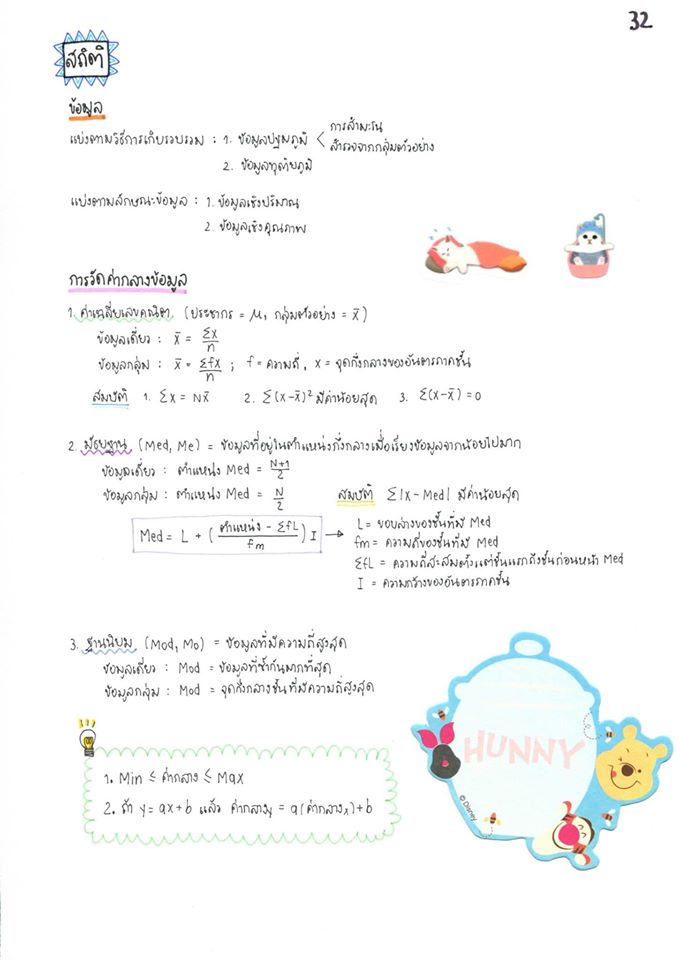 32
สถิติ
ข้อมูล
แบ่งตามวิธีการเก็บรวบรวม : 1. ข้อมูลปฐมภูมิ < การสำมะโน
สำรวจจากกลุ่มตัวอย่าง
2. ข้อมูลทุติยภูมิ
แบ่งตามลักษณะข้อมูล : 1. ข้อมูลเชิงปริมาณ
2. ข้อมูลเชิงคุณภาพ
การวัดค่ากลางข้อมูล
1. ค่าเฉลี่ยเลขคณิต (ประชากร = μ, กลุ่มตัวอย่าง = x̄)
ข้อมูลเดี่ยว : x̄ = Σx/n
ข้อมูลกลุ่ม : x̄ = Σfx/n ; f = ความถี่, x = จุดกึ่งกลางของอันตรภาคชั้น
สมบัติ 1. Σx = Nx̄ 2. Σ(x-x̄)² มีค่าน้อยสุด 3. Σ(x-x̄) = 0
2. มัธยฐาน (Med, Me) = ข้อมูลที่อยู่ในตำแหน่งกึ่งกลางเมื่อเรียงข้อมูลจากน้อยไปมาก
ข้อมูลเดี่ยว : ตำแหน่ง Med = N+1/2
ข้อมูลกลุ่ม : ตำแหน่ง Med = N/2
สมบัติ Σ|x-Med| มีค่าน้อยสุด
Med = L + (ตำแหน่ง - ΣfL/fm) I →
L = ขอบล่างของชั้นที่มี Med
fm = ความถี่ของชั้นที่มี Med
ΣfL = ความถี่สะสมตั้งแต่ชั้นแรกถึงชั้นก่อนหน้า Med
I = ความกว้างของอันตรภาคชั้น
3. ฐานนิยม (Mod, Mo) = ข้อมูลที่มีความถี่สูงสุด
ข้อมูลเดี่ยว : Mod = ข้อมูลที่ซ้ำกันมากที่สุด
ข้อมูลกลุ่ม : Mod = จุดกึ่งกลางชั้นที่มีความถี่สูงสุด
HUNNY
© Disney
1. Min ≤ ค่ากลาง ≤ Max
2. ถ้า y = ax+b แล้ว ค่ากลางy = a(ค่ากลางx)+b